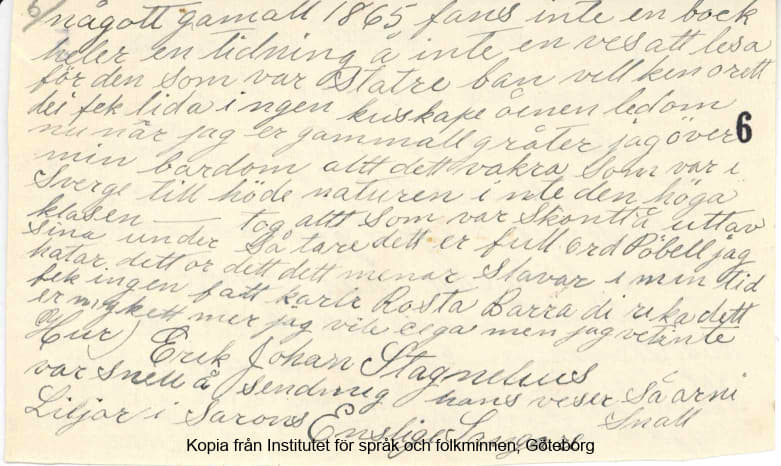 6/ någott gamall 1865 fans inte en bock
heler en tidning å inte en ves att lesa
för den som var Statre ban vell ken orett
dei fek lida i ngen kuskape öenen ledom
nu när jag er gammall gråter jag över
6
min bardom altt dett vakra som var i
Sverge till höde naturen i nte den höga
klasen — tog altt som var skontt å uttav
sina under Såtare dett er full ord Pöbell jag
hatar dett or dett dett menar Slavar i min tid
fek ingen fatt karle Rösta Barra di rika dett
er mykett mer jag vile cega men jag vet inte
Hur) Erik Johan Stagnelius
var snell å sendmig hans veser Så arni
Liljor i Sarons Snall
Kopia från Institutet för språk och folkminnen, Göteborg